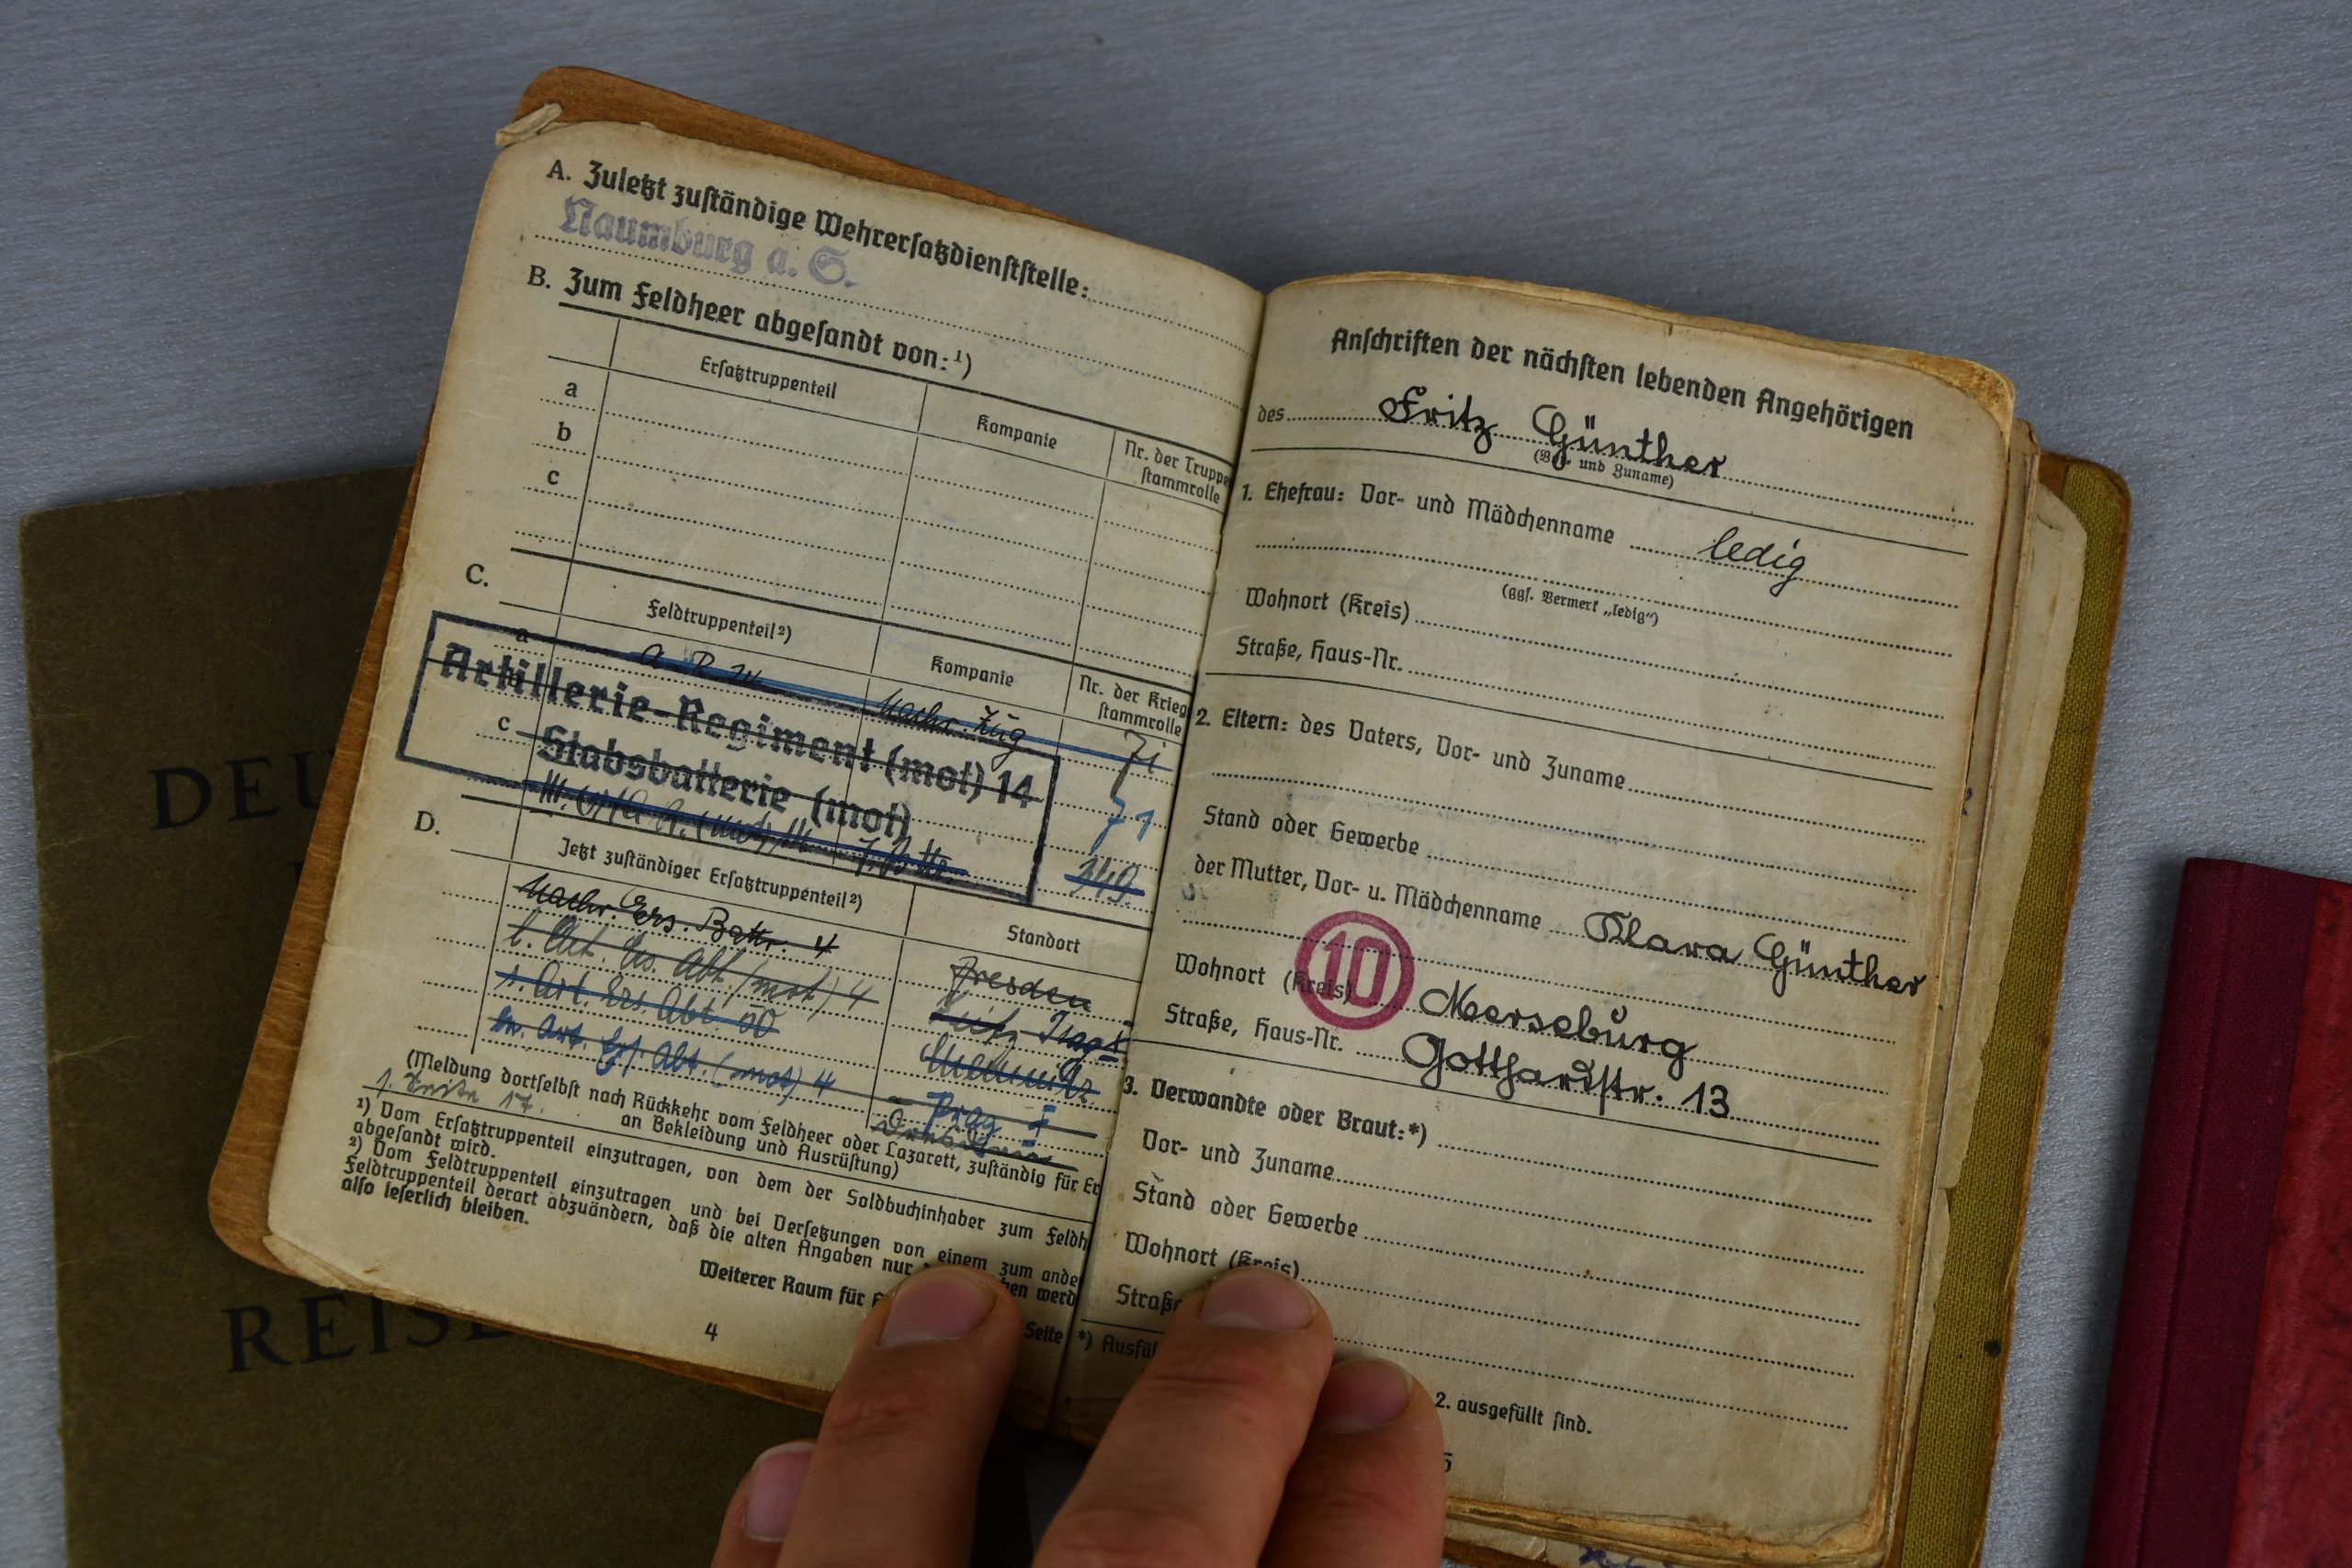 A. Zuletzt zuständige Wehrersatzdienststelle:
Naumburg a. S.
B. Zum Feldheer abgesandt von:¹)
Ersatztruppenteil
Kompanie
Nr. der Truppe
stammrolle
a
b
c
C.
Feldtruppenteil²)
Kompanie
Nr. der Krieg
stammrolle
a
A. R. 14
Nachr. Zug
71
Artillerie-Regiment (mot) 14
c
Stabsbatterie (mot)
71
349.
D.
Jetzt zuständiger Ersatztruppenteil²)
Standort
Nachr. Ers. Battr. 4
Dresden
l. Art. Ers. Abt. (mot) 4
Prag
s. Art. Ers. Abt. 50
Chemnitz
Art. Ers. Abt. (mot) 4
Prag I
Dresden
(Meldung dortselbst nach Rückkehr vom Feldheer oder Lazarett, zuständig für Er
an Bekleidung und Ausrüstung)
1. Seite 17.
¹) Vom Ersatztruppenteil einzutragen, von dem der Soldbuchinhaber zum Feldh
abgesandt wird.
²) Vom Feldtruppenteil einzutragen und bei Versetzungen von einem zum ande
Feldtruppenteil derart abzuändern, daß die alten Angaben nur werd
also leserlich bleiben.
Weiterer Raum für
Seite
4
Anschriften der nächsten lebenden Angehörigen
des Fritz Günther
(Vor- und Zuname)
1. Ehefrau: Vor- und Mädchenname ledig
(ggf. Vermerk „ledig“)
Wohnort (Kreis)
Straße, Haus-Nr.
2. Eltern: des Vaters, Vor- und Zuname
Stand oder Gewerbe
der Mutter, Vor- u. Mädchenname Klara Günther
10
Wohnort (Kreis) Merseburg
Straße, Haus-Nr. Gotthardstr. 13
3. Verwandte oder Braut:*)
Vor- und Zuname
Stand oder Gewerbe
Wohnort (Kreis)
Straße
*) Ausfül
2. ausgefüllt sind.
5
DEU
REISE